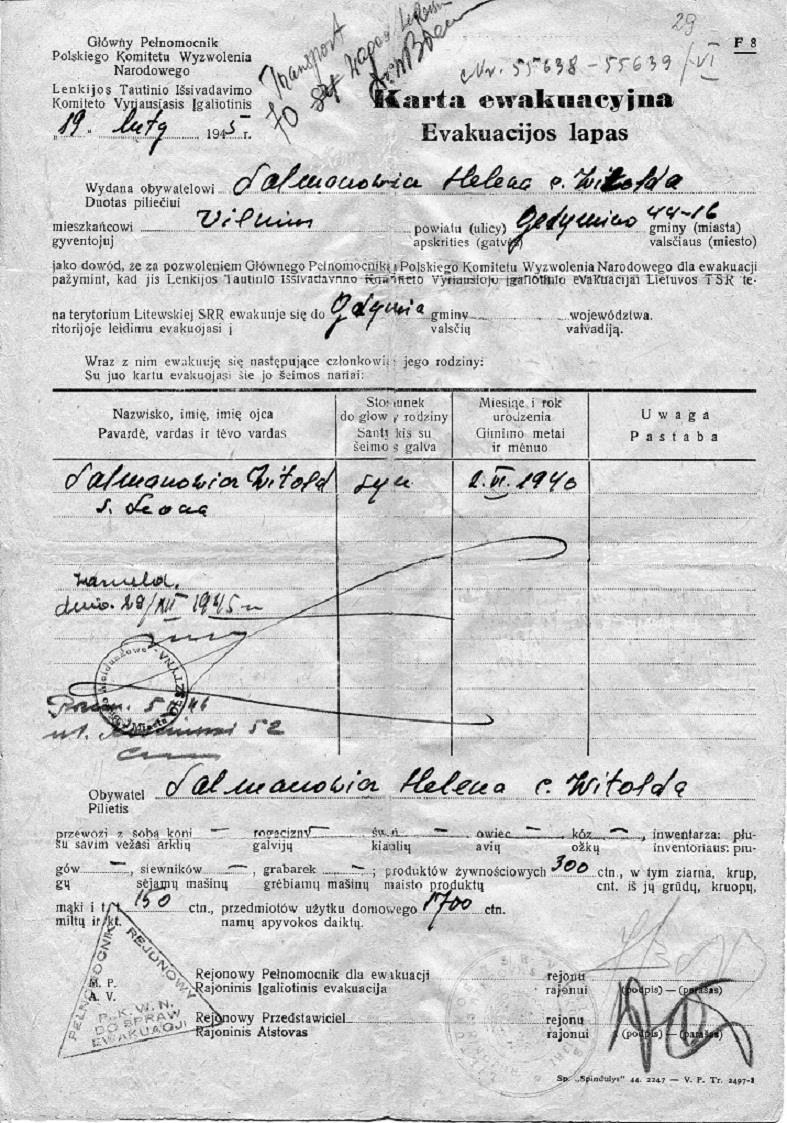 29
F 8
Nr. 55638 - 55639/VI
Transport
70
Główny Pełnomocnik
Polskiego Komitetu Wyzwolenia
Narodowego
Lenkijos Tautinio Išsivadavimo
Komiteto Vyriausiasis Įgaliotinis
"19" luty 1945 r.
Karta ewakuacyjna
Evakuacijos lapas
Wydana obywatelowi Salmanowicz Helena c. Witolda
Duotas piliečiui
mieszkańcowi Vilnius powiatu (ulicy) Gedymino 44-16 gminy (miasta)
gyventojuj apskrities (gatvės) valsčiaus (miesto)
jako dowód, że za pozwoleniem Głównego Pełnomocnika Polskiego Komitetu Wyzwolenia Narodowego dla ewakuacji
pažymint, kad jis Lenkijos Tautinio Išsivadavimo Komiteto Vyriausiojo Įgaliotinio evakuacijai Lietuvos TSR te-
na terytorium Litewskiej SRR ewakuuje się do Gdynia gminy województwa.
ritorijoje leidimu evakuojasi į valsčių vaivadiją.
Wraz z nim ewakuuję się następujące członkowie jego rodziny:
Su juo kartu evakuojasi šie jo šeimos nariai:
Nazwisko, imię, imię ojca
Pavardė, vardas ir tėvo vardas
Stosunek
do głowy rodziny
Santykis su
šeimos galva
Miesiąc i rok
urodzenia
Gimimo metai
ir mėnuo
Uwaga
Pastaba
Salmanowicz Witold syn 2.VI.1940
s. Leona
zameld.
dnia 29/XII 1945 r
Miasta
5 46
ul. 52
Obywatel Salmanowicz Helena c. Witolda
Pilietis
przewozi z sobą koni — rogacizny — świń —, owiec —, kóz —, inwentarza: płu-
su savim vežasi arklių galvijų kiaulių avių ožkų inventoriaus: plu-
gów —, siewników —, grabarek —; produktów żywnościowych 300 ctn., w tym ziarna, krup,
gų sėjamų mašinų grėbiamų mašinų maisto produktų cnt. iš jų grūdų, kruopų,
mąki i t. p. 150 ctn., przedmiotów użytku domowego 1700 ctn.
miltų ir kt. namų apyvokos daiktų.
PEŁNOMOCNIK REJONOWY
P. K. W. N.
DO SPRAW
EWAKUACJI
M. P.
A. V.
Rejonowy Pełnomocnik dla ewakuacji rejonu
Rajoninis Įgaliotinis evakuacija rajonui (podpis) — (parašas)
Rejonowy Przedstawiciel rejonu
Rajoninis Atstovas rajonui (podpis) — (parašas)
Sp. „Spindulys" 44. 2247 — V. P. Tr. 2497-I